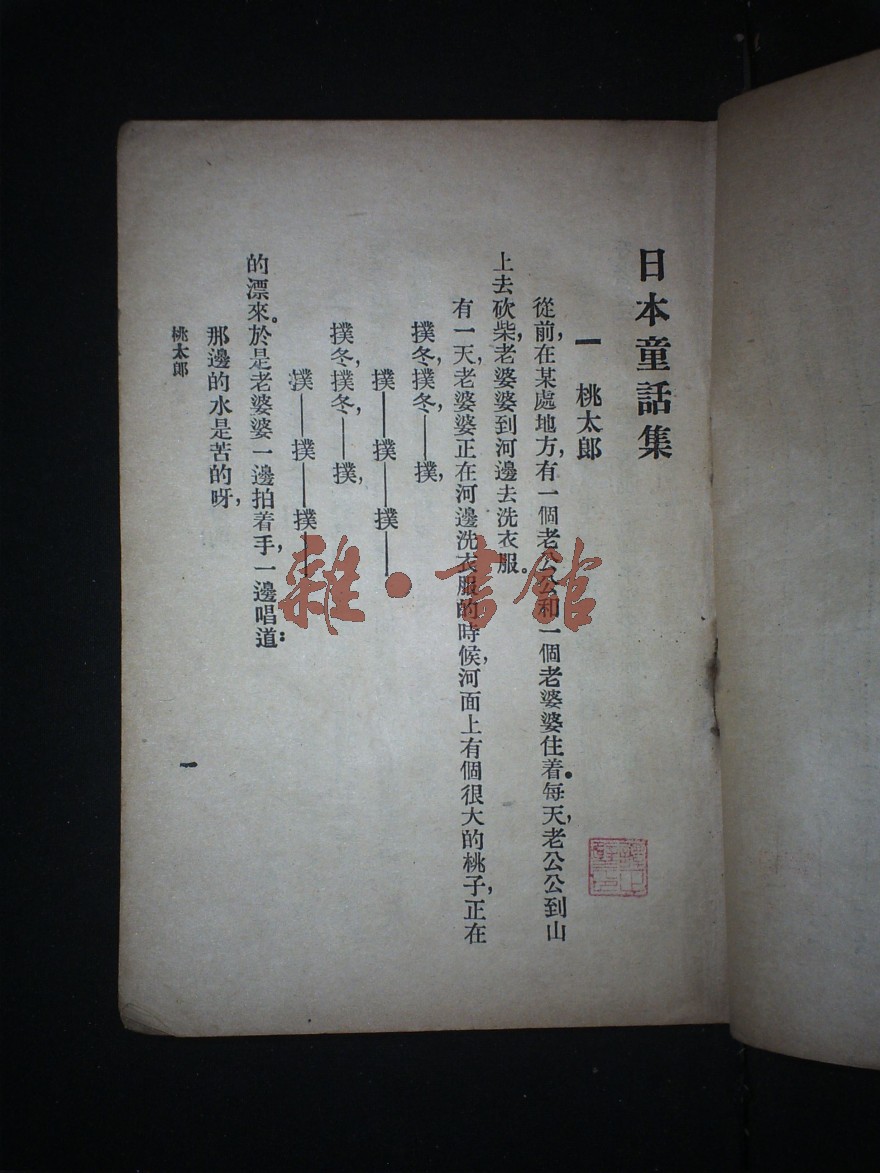 日本童話集
一　桃太郎
從前，在某處地方，有一個老公公和一個老婆婆住着。每天，老公公到山
上去砍柴，老婆婆到河邊去洗衣服。
有一天，老婆婆正在河邊洗衣服的時候，河面上有個很大的桃子，正在
撲冬，撲冬——撲，
撲——撲——撲——
撲冬，撲冬，——撲，
撲——撲——撲——
的漂來。於是老婆婆一邊拍着手，一邊唱道：
那邊的水是苦的呀，
桃太郎
一
雜·書館